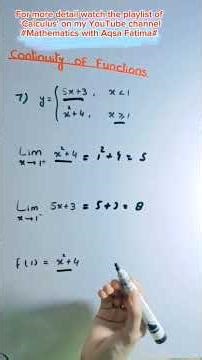 For more detail watch the playlist of
"Calculus" on my YouTube channel
#Mathematics with Aqsa Fatima#
Continuity of Functions
7) y = { 5x+3 , x<1
x²+4 , x≥1
Lim x→1⁺ x²+4 = 1²+4 = 5
Lim x→1⁻ 5x+3 = 5+3 = 8
f(1) = x²+4